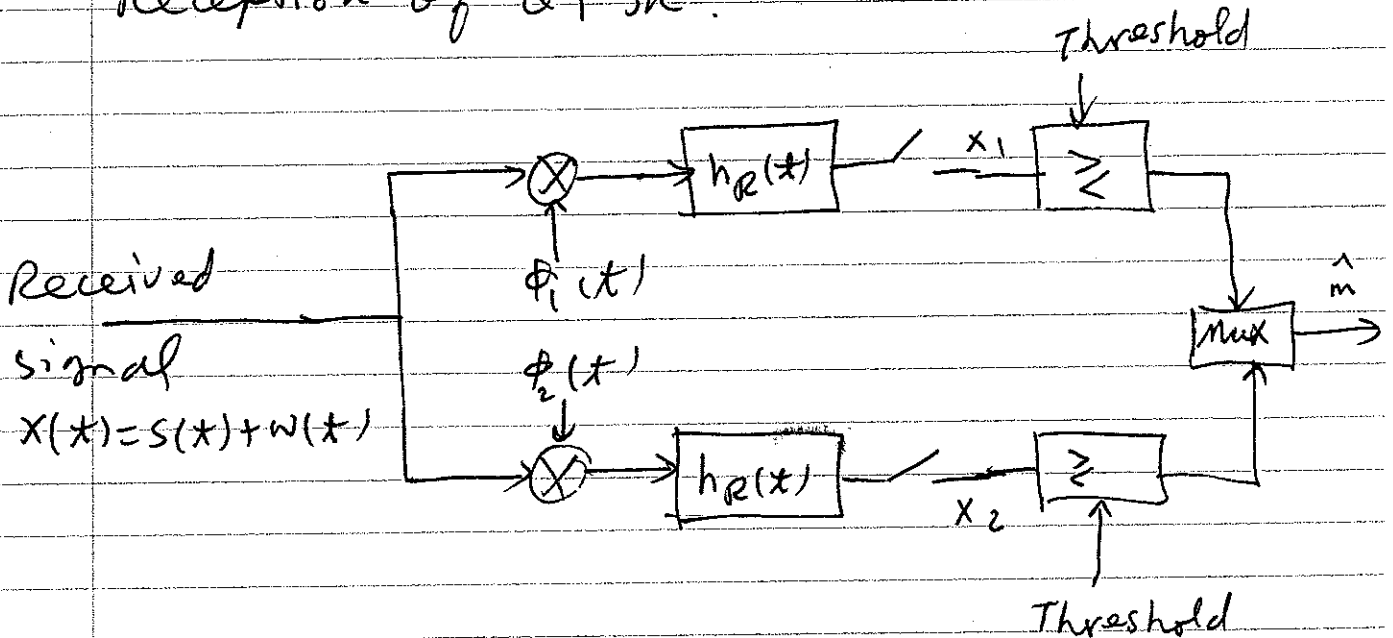 Reception of QPSK.
Threshold
h_R(t)
x_1
≷
ϕ_1(t)
Received
signal
X(t)=S(t)+W(t)
m̂
Mux
ϕ_2(t)
h_R(t)
x_2
≷
Threshold